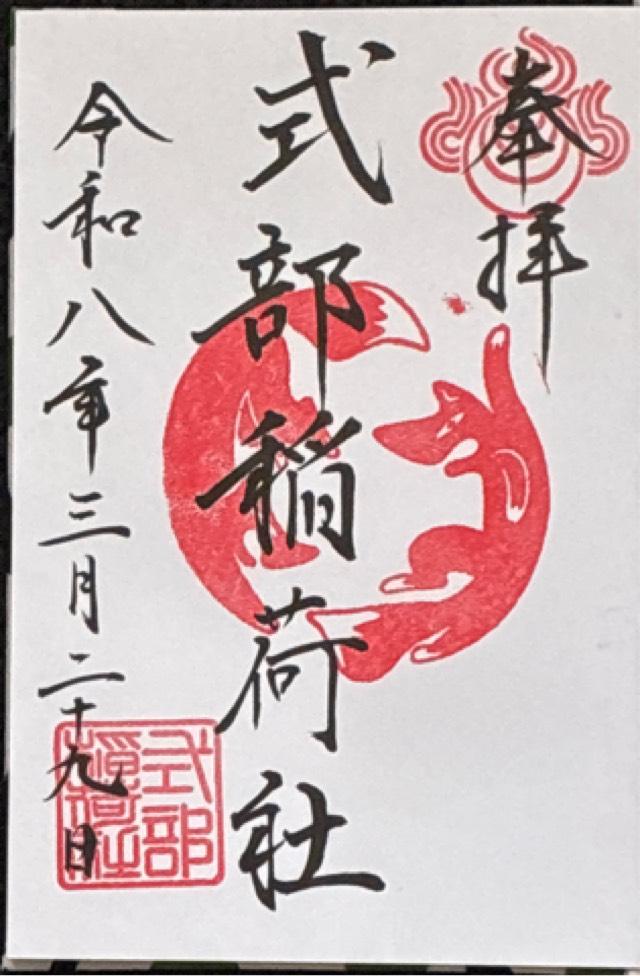 奉拝
式部稲荷社
令和八年三月二十九日
式部
稲荷社